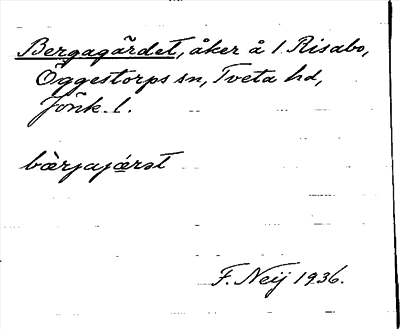 Bergagärdet, åker å 1 Risabo,
Öggestorps sn, Tveta hd,
Jönk. l.
bærjajæɾət
F. Neij 1936.